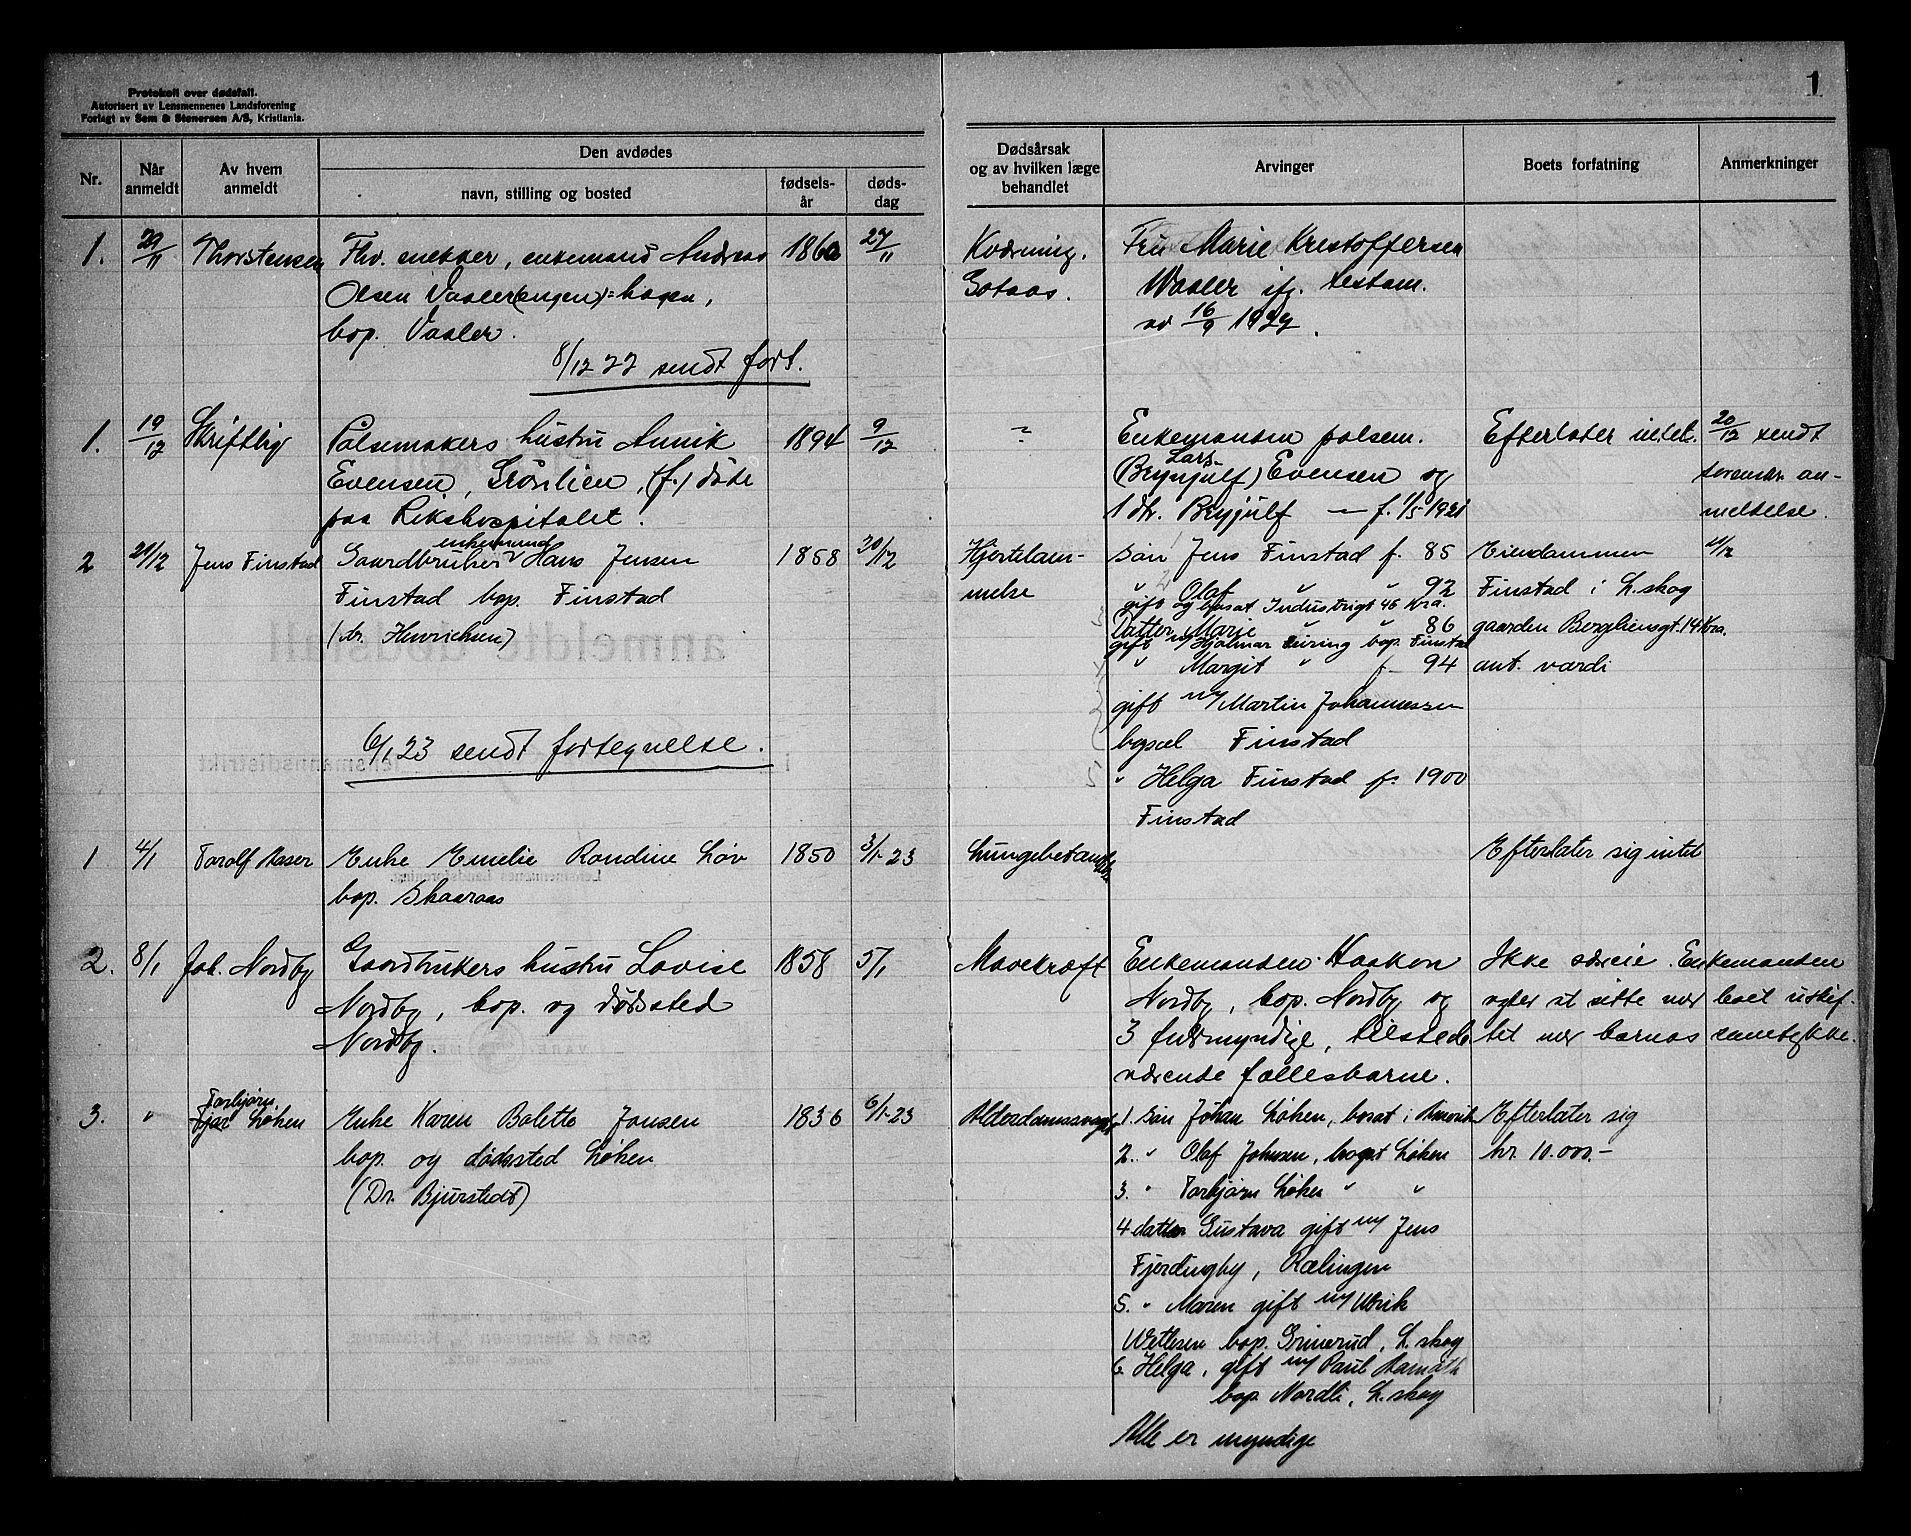 Protokoll over dødsfall.
Autorisert av Lensmennenes Landsforening
Forlagt av Sem & Stenersen A/S, Kristiania.
1
Nr.
Når anmeldt
Av hvem anmeldt
Den avdødes
navn, stilling og bosted
fødsels-år
døds-dag
Dødsårsak
og av hvilken læge
behandlet
Arvinger
Boets forfatning
Anmerkninger
1. 29/11 Thorstensen Fhv. snekker, enkemand Andreas 1860 27/11
Olsen Vaaler(engen)=hagen,
bop. Vaaler.
8/12 22 sendt fort.
Kværning.
Gotaas.
Fru Marie Kristoffersen
Waaler ifg. testam.
av 16/9 1922.
1. 19/12 Skriftlig Pølsemakers hustru Annik 1894 9/12
Evensen, Grønlien, (f.) døde
paa Rikshospitalet.
?
Enkemanden pølsem.
Lars
(Brynjulf) Evensen og
1 dtr. Brynjulf — f. 1/5 1921
Efterlater intet.
20/12 sendt
sorenskr. an-
meldelse.
2 21/12 Jens Finstad Gaardbruker enkemand Hans Jensen 1858 20/12
Finstad bop. Finstad
(dr. Henrichsen)
6/1 23 sendt fortegnelse.
Hjertelam-
melse
Søn Jens Finstad f. 85
" Olaf " " 92
gift og bosat Industrigt 46 Kra.
Datter Marie " 86
gift m/Hjalmar bop. Finstad
" Margit " f. 94
gift m/Martin Johannessen
bopæl Finstad
" Helga Finstad f. 1900
Finstad
Eiendommen
Finstad i L.skog
gaarden Bergliensgt. 14 Kra.
ant. værdi
1 4/1 Torolf Aaser Enke Emelie Randine Løv 1850 3/1-23
bop. Skaaraas
Lungebetændelse
Efterlater sig intet
2. 8/1 Joh. Nordby Gaardbrukers hustru Lovise 1858 5/1
Nordby, bop. og dødssted
Nordby.
Mavekræft
Enkemanden Haakon
Nordby, bop. Nordby og
3 fuldmyndige, tilstede-
værende fællesbarne.
Ikke særeie. Enkemanden
agter at sitte med boet uskif-
tet med barnas samtykke.
3. " Torbjørn Løken Enke Karen Bolette Jonsen 1836 6/1-23
bop. og dødssted Løken
(Dr. Bjurstedt)
Alderdomssvaghet
1. Søn Johan Løken, bosat i Amerik
2. " Olaf Johnsen, bosat Løken
3. " Torbjørn Løken " "
4 datter Gustava gift m/ Jens
Fjerdingby, Rælingen
5. " Maren gift m/ Ulrik
Wetlesen bop. Grinerud, L.skog
6. Helga, gift m/ Paul
bop. Nordli, L.skog
Alle er myndige
Efterlater sig
kr. 10.000.-